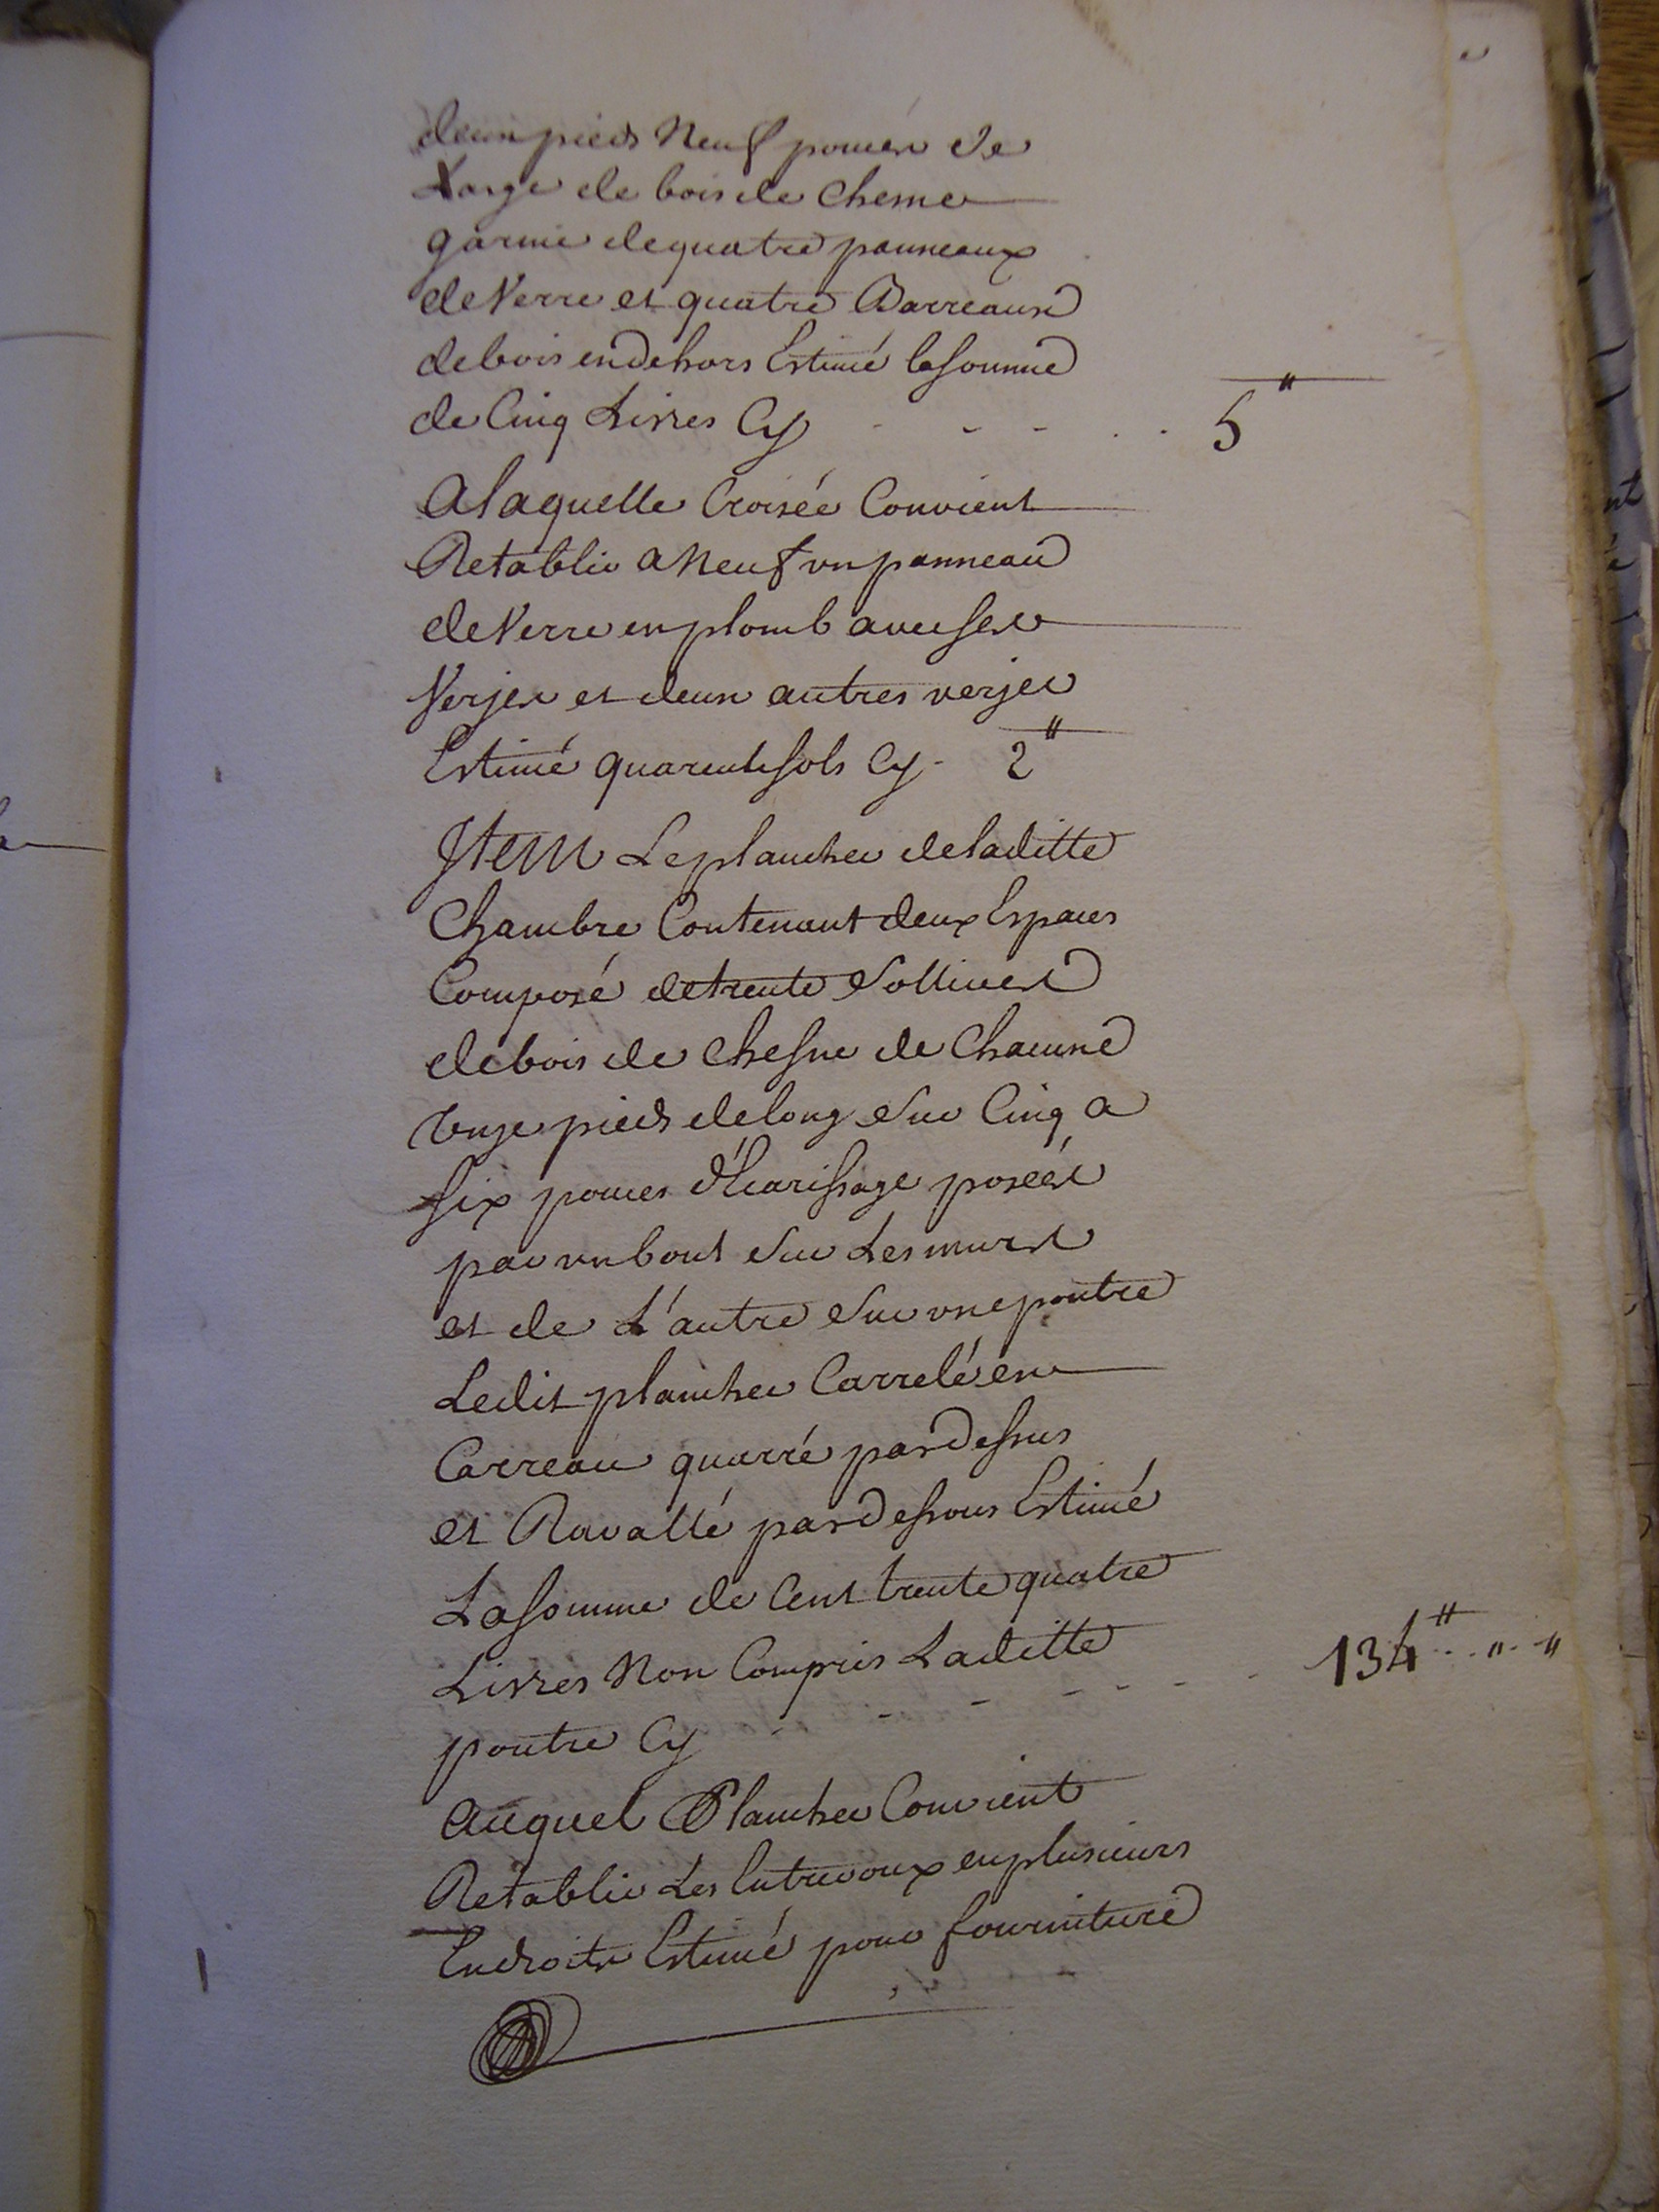 deux pieds Neuf pouces de
Large de bois de Chesne
garnie de quatre panneaux
de Verre et quatre Barreaux
de bois en dehors Estimé la somme
de Cinq Livres Cy - - - . . 5"
A laquelle Croisée Convient
Retablir a Neuf un panneau
de Verre en plomb avec ses
Verjes et deux autres verjes
Estimé quarente sols Cy - 2"
Item Le plancher de laditte
Chambre Contenant deux Espaces
Composé de trente Sollives
de bois de Chesne de Chacune
Unze pieds de long Sur Cinq a
Six pouces d'Ecarissage posées
par un bout Sur Les murs
et de L'autre Sur une poutre
Ledit plancher Carrelé en
Carreau quarré par dessus
et Ravallé par dessous Estimé
La somme de Cent trente quatre
Livres Non Compris Laditte
poutre Cy - - - - - - 134" .. " .. "
Auquel Plancher Convient
Retablir Les Entrevoux en plusieurs
Endroits Estimé pour fourniture